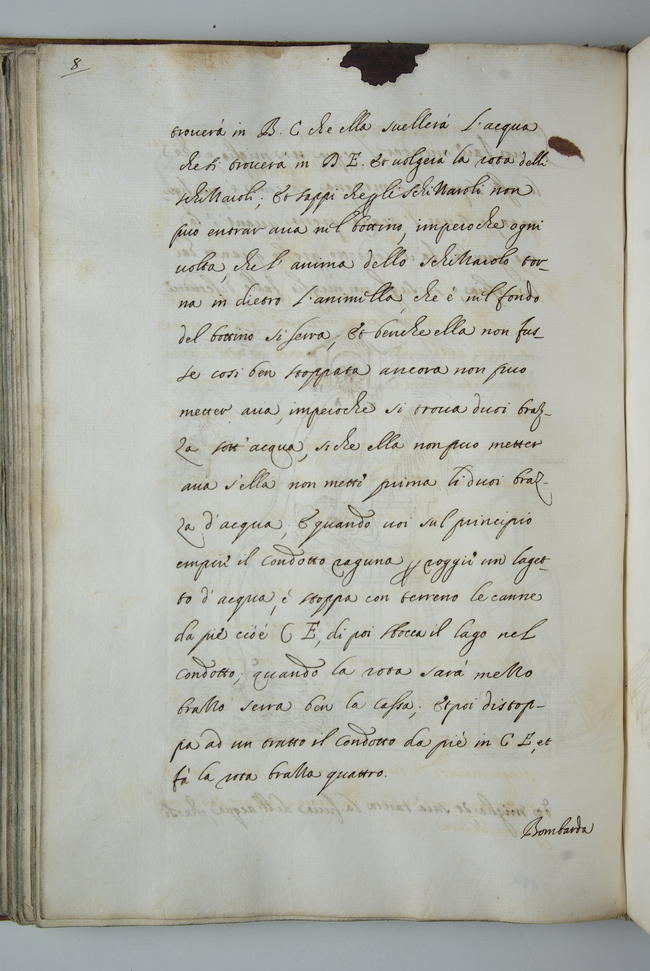 8
trouerà in B. C che ella suellerà l'acqua
che si trouerà in D E. et uolgerà la rota delli
schizzaroli; et sappi che gli schizzaroli non
puo entrar aua nel bottino, imperoche ogni
uolta, che l'anima dello schizzarolo tor-
na in dietro l'animella, che è nel fondo
del bottino si serra, et benche ella non fus-
se cosi ben stoppata ancora non puo
metter aua, imperoche si troua duoi braz-
za sott'acqua, si che ella non puo metter
aua s'ella non mette prima li duoi braz-
za d'acqua, et quando uoi sul principio
empire il condotto raguna roggie un laget-
to d'acqua, e stoppa con terreno le canne
da piè cioè C E, di poi sbocca il lago nel
condotto; quando la rota sarà mezzo
brazzo serra ben la cassa; et poi distop-
pa ad un tratto il condotto da piè in C E, et
fà la rota brazza quattro.
Bombarda